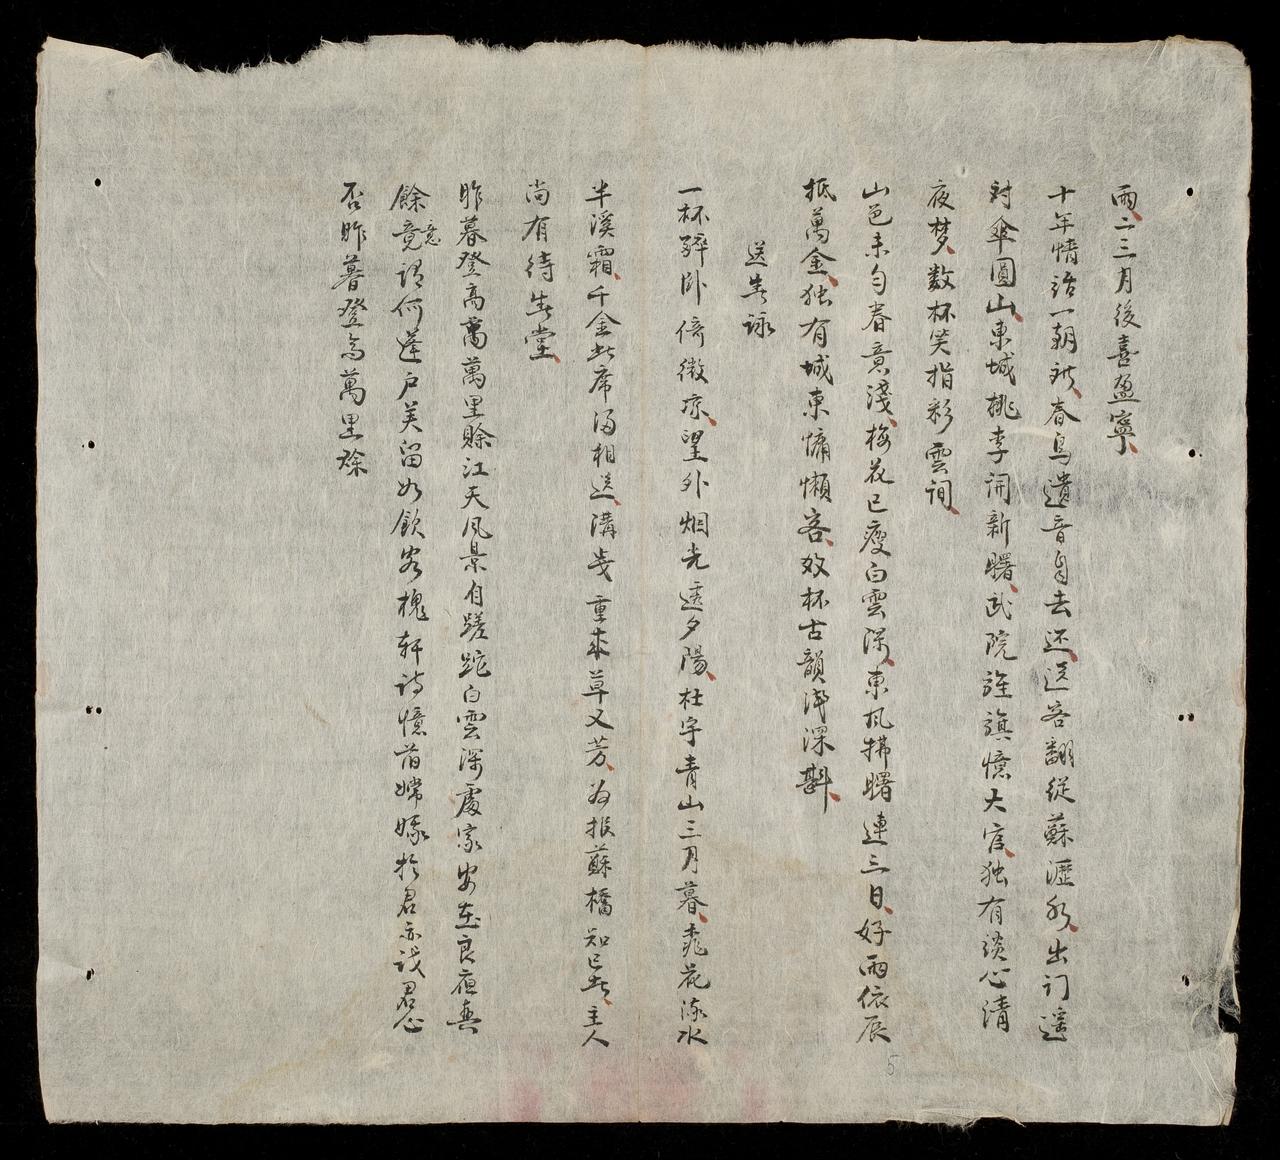 雨二三月後喜盈寧
十年情話一朝水春鳥遺音自去还送客翻従蘇瀝水出门遥
対傘圓山東城桃李開新曙武院旌旗憶大宦独有談心清
夜梦数杯笑指彩雲詞
山邑未匀春意淺梅花已瘦白雲深東風拂曙連三日好雨依辰
抵萬金独有城東慵懶客效杯古韻浅深斟
送春詠
一杯醉卧倚微凉望外烟光透夕陽杜宇青山三月暮桃花流水
半溪霜千金此席酒相送溝戋重來草又芳為报蘇橋知已者主人
尚有待春堂
昨暮登高萬萬里賒江天风景自蹉跎白雲深處家安在良夜春
餘竟意謂何蓬戸美留如飲客槐軒詩憶苗嫦嫁於君亦識君心
否昨暮登高萬里賒
5